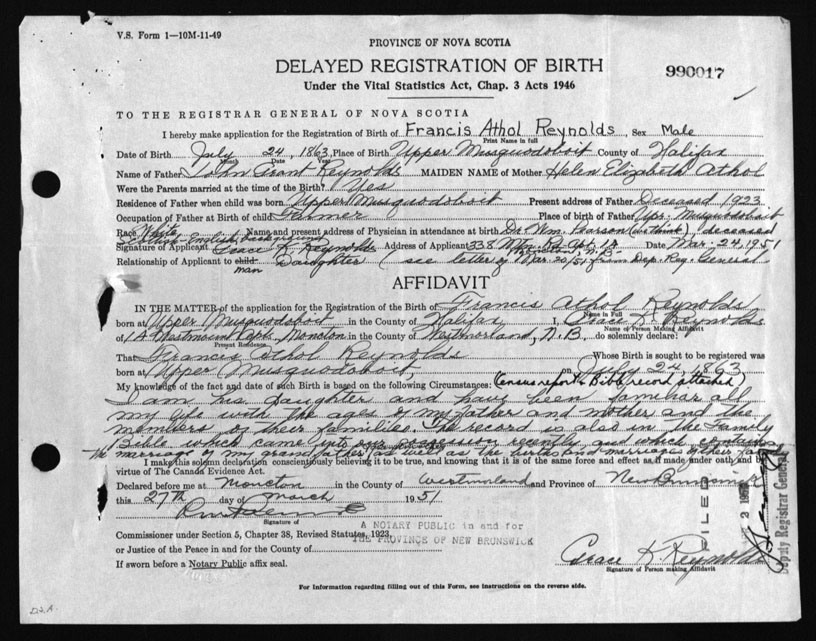 V.S. Form 1—10M-11-49
PROVINCE OF NOVA SCOTIA
DELAYED REGISTRATION OF BIRTH
990017
Under the Vital Statistics Act, Chap. 3 Acts 1946
TO THE REGISTRAR GENERAL OF NOVA SCOTIA
I hereby make application for the Registration of Birth of Francis Athol Reynolds, Sex Male
Print Name in full
Date of Birth July 24, 1863, Place of Birth Upper Musquodoboit County of Halifax
Month Date Year
Name of Father John Grant Reynolds MAIDEN NAME of Mother Helen Elizabeth Athol
Were the Parents married at time of the Birth? Yes
Residence of Father when child was born Upper Musquodoboit Present address of Father Deceased 1923
Occupation of Father at Birth of child Farmer Place of birth of Father Upr. Musquodoboit
Race White Name and present address of Physician in attendance at birth Dr. Wm. Pearson (we think) deceased
Scottish-English background
Signature of Applicant Grace K. Reynolds Address of Applicant 338 Mtn Rd Apt. 14 Date Mar. 24, 1951
Relationship of Applicant to child Daughter (see letter of Mar. 20/51 from Dep. Reg. General
man
AFFIDAVIT
IN THE MATTER of the application for the Registration of the Birth of Francis Athol Reynolds
Name in Full
born at Upper Musquodoboit in the County of Halifax, Grace K. Reynolds
Name of Person Making Affidavit
of 14 Westmount Apts. Moncton in the County of Westmorland, N.B. do solemnly declare:
Present Residence
That Francis Athol Reynolds Whose Birth is sought to be registered was
born at Upper Musquodoboit, on July 24, 1863
My knowledge of the fact and date of such Birth is based on the following Circumstances: (Census report & Bible record attached)
I am his daughter and have been familiar all
my life with the ages of my father and mother and the
members of their families. The record is also in the Family
Bible which came into our possession recently and which contains
the marriage of my grandfather as well as the births and marriages of their family
I make this solemn declaration conscientiously believing it to be true, and knowing that it is of the same force and effect as if made under oath and by
virtue of The Canada Evidence Act.
Declared before me at Moncton in the County of Westmorland and Province of New Brunswick
this 27th day of March 1951
Signature of
A NOTARY PUBLIC in and for
THE PROVINCE OF NEW BRUNSWICK
Commissioner under Section 5, Chapter 38, Revised Statutes, 1923,
or Justice of the Peace in and for the County of
If sworn before a Notary Public affix seal.
Grace K. Reynolds
Signature of Person making Affidavit
FILED
Deputy Registrar General
For information regarding filling out of this Form, see instructions on the reverse side.